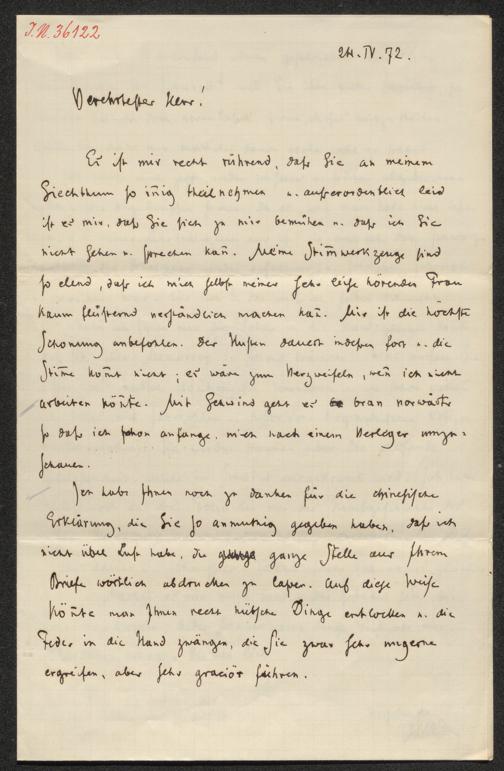 J.N. 36122
24.IV.72.
Verehrtester Herr!
Es ist mir recht rührend, daß Sie an meinem
Siechthum so iñig theilnehmen u. außerordentlich leid
ist es mir, daß Sie sich zu mir bemühen u. daß ich Sie
nicht sehen u. sprechen kañ. Meine Stim̄werkzeuge sind
so elend, daß ich mich selbst meiner sehr leise hörenden Frau
kaum flüsternd verständlich machen kañ. Mir ist die höchste
Schonung anbefohlen. Der Husten dauert indessen fort u. die
Stim̄e kom̄t nicht; es wäre zum Verzweifeln, weñ ich nicht
arbeiten köñte. Mit Schwind geht es bran vorwärts
so daß ich schon anfange, mich nach einem Verleger umzu-
schauen.
Ich habe Ihnen noch zu danken für die chinesische
Erklärung, die Sie so anmuthig gegeben haben, daß ich
nicht übel Lust habe, die ganze Stelle aus Ihrem
Briefe wörtlich abdrucken zu lassen. Auf diese Weise
köñte man Ihnen recht hübsche Dinge entlocken u. die
Feder in die Hand zwängen, die Sie zwar sehr ungerne
ergreifen, aber sehr graciös führen.